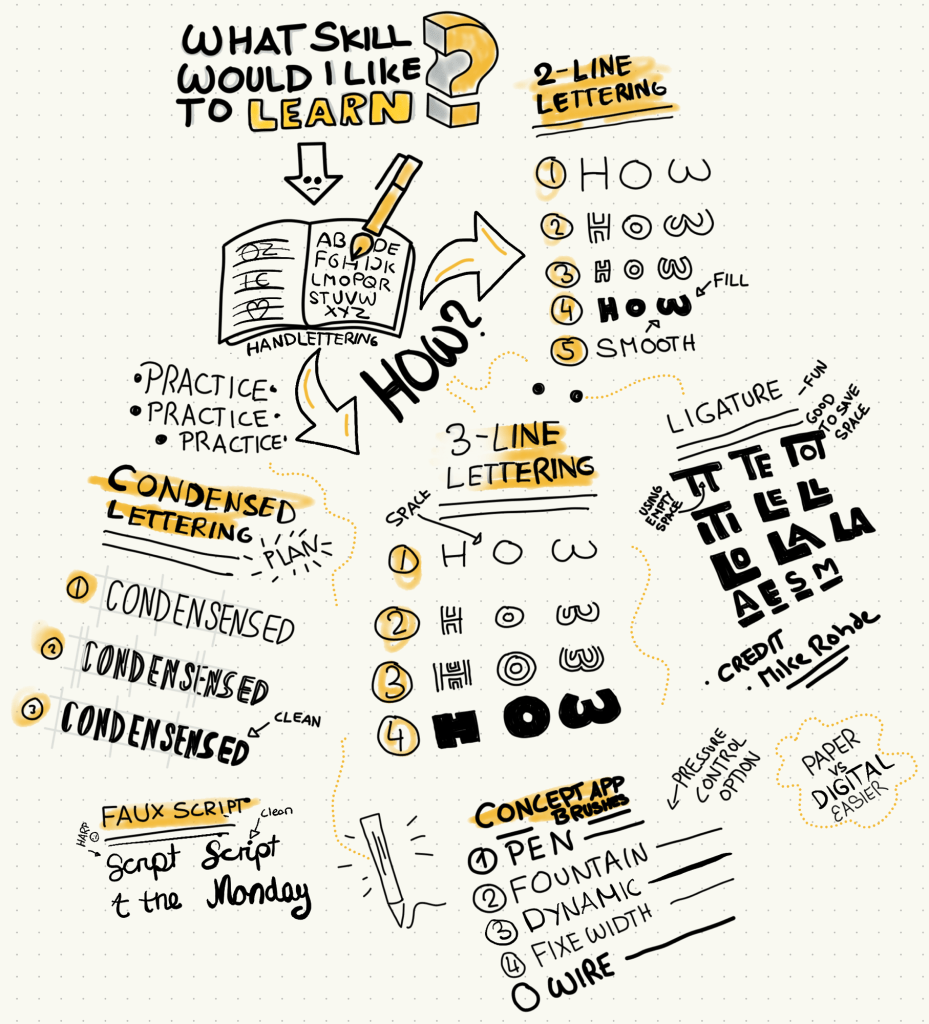 WHAT SKILL
WOULD I LIKE
TO LEARN?
ABCDE
FGHIJK
LMOPQR
STUVW
XYZ
HANDLETTERING
HOW?
• PRACTICE •
• PRACTICE •
• PRACTICE •
2-LINE
LETTERING
1 HOW
2 HOW
3 HOW
4 HOW
FILL
5 SMOOTH
3-LINE
LETTERING
SPACE
1 HOW
2 HOW
3 HOW
4 HOW
LIGATURE
- FUN
GOOD
TO SAVE
SPACE
USING
EMPTY
SPACE
TT TE TOT
ITI LE LL
LO LA LA
A E S M
• CREDIT
• Mike Rohde
CONDENSED
LETTERING
PLAN
1 CONDENSENSED
2 CONDENSENSED
3 CONDENSENSED
CLEAN
FAUX SCRIPT
HARD
clean
Script Script
t the Monday
CONCEPT APP
BRUSHES
PRESSURE
CONTROL
OPTION
1 PEN
2 FOUNTAIN
3 DYNAMIC
4 FIXE WIDTH
O WIRE
PAPER
VS
DIGITAL
EASIER